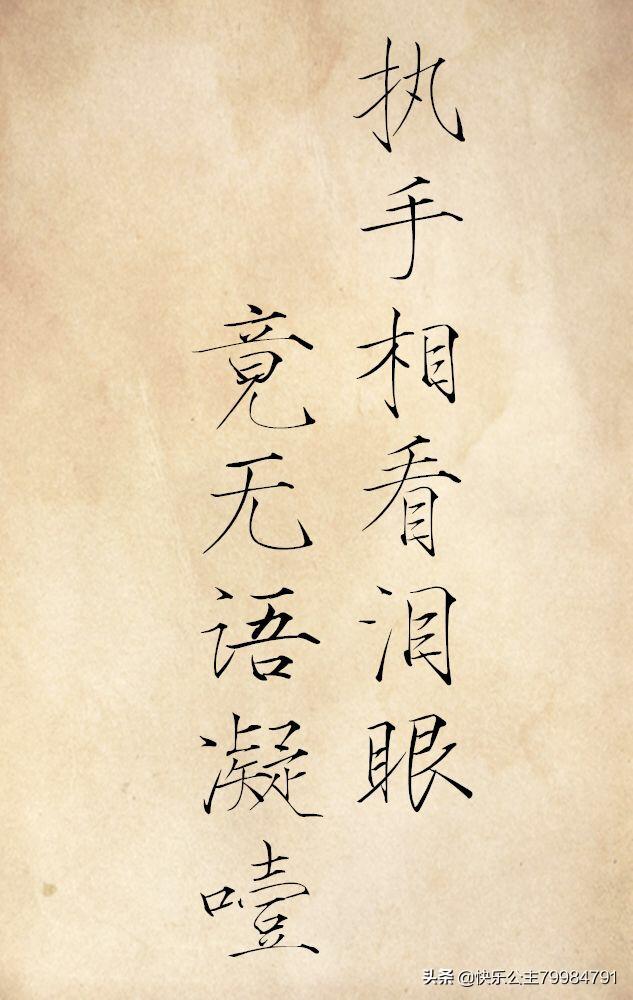 执手相看泪眼
竟无语凝噎
头条 @快乐公主79984791